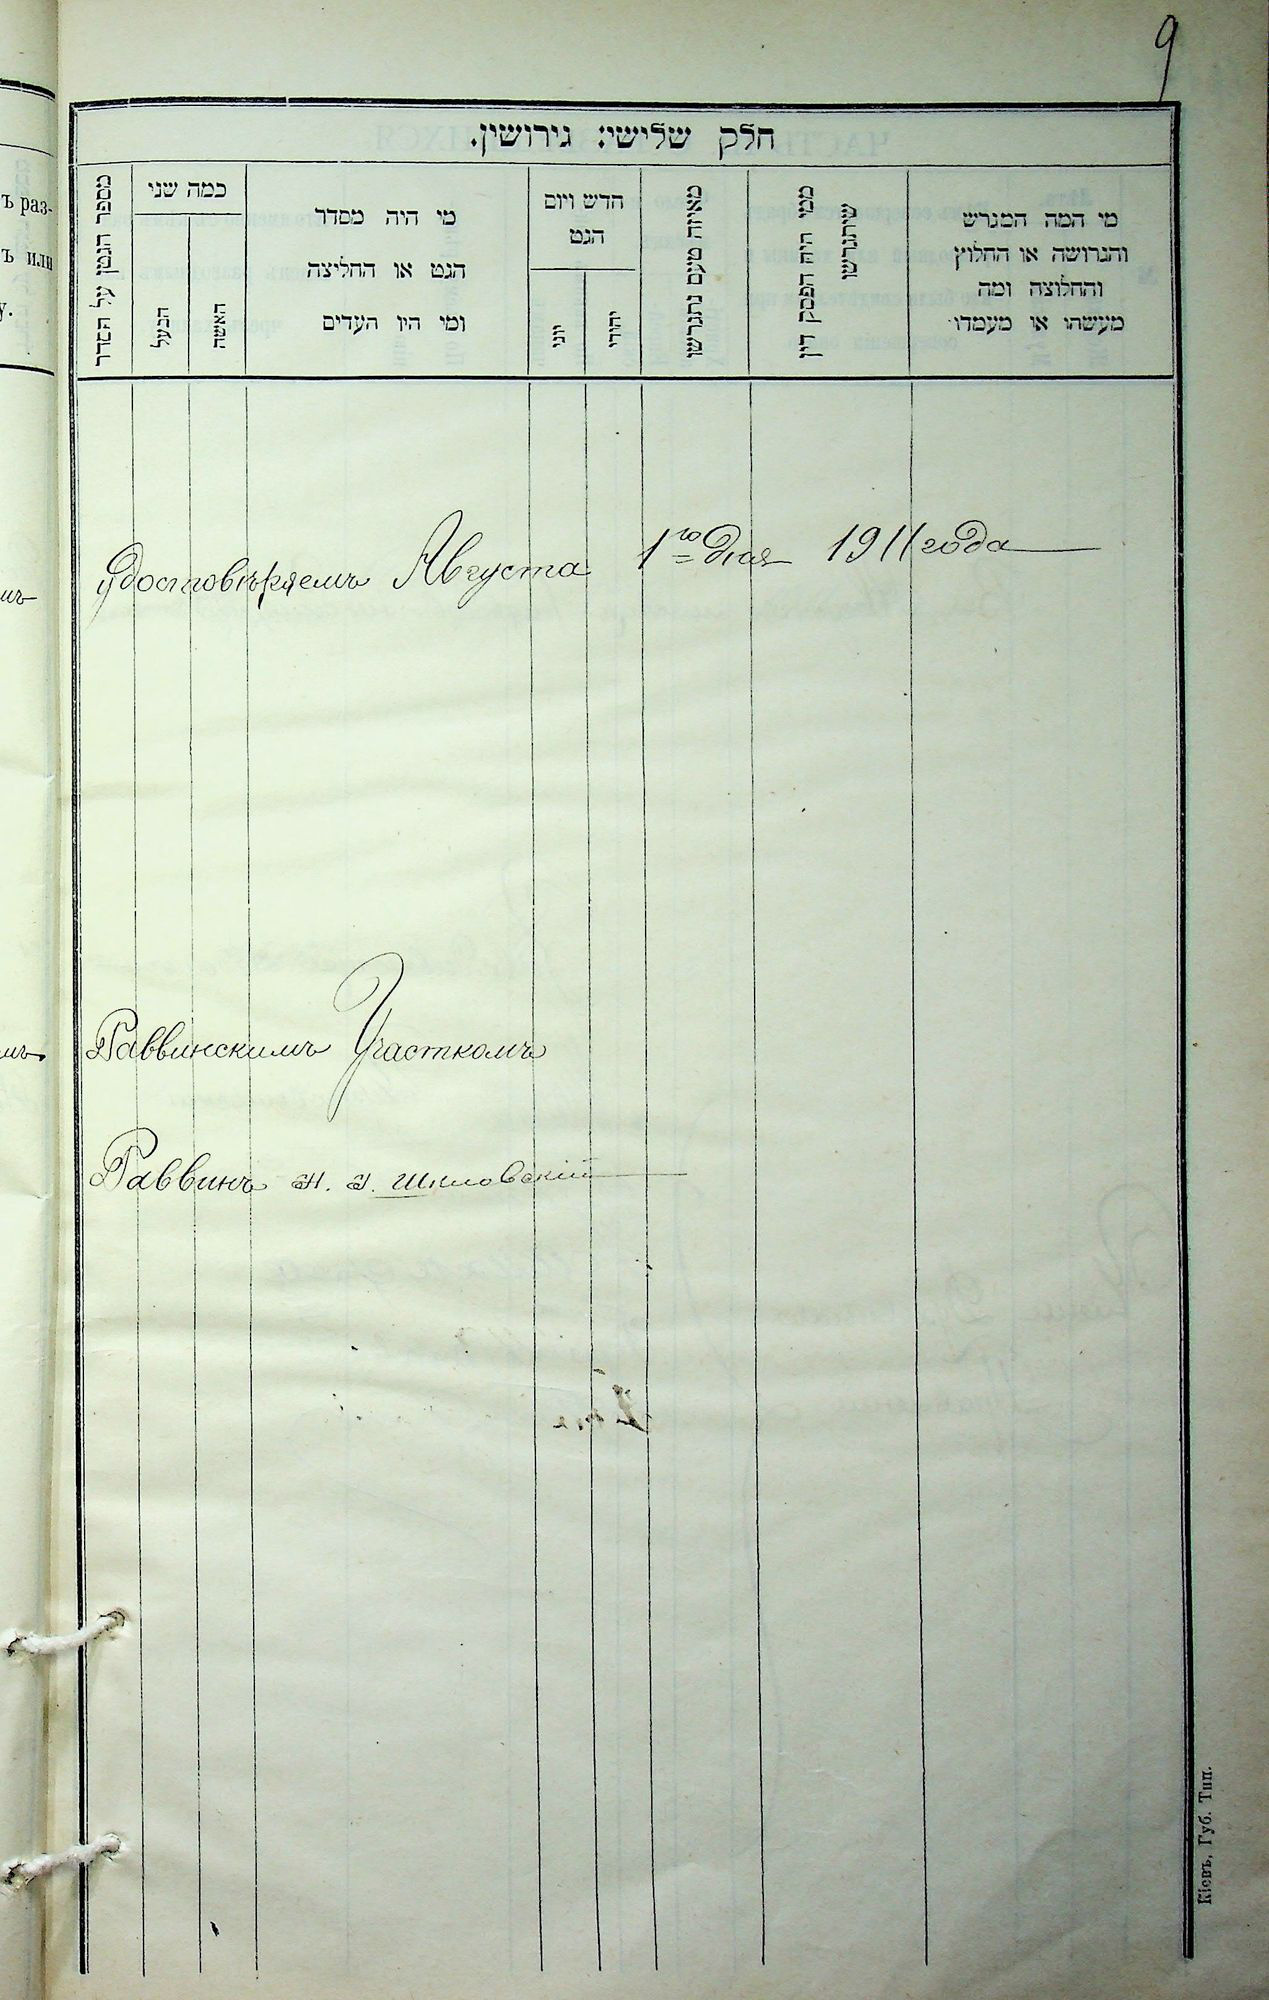 9
חלק שלישי: גירושין.
מי המה המגרש
והגרושה או החלוץ
והחלוצה ומה
מעשהו או מעמדו
ממי היה הפסק דין
שיתגרשו
מאיזה טעם נתגרשו
חדש ויום
הגט
יהודי
יוני
מי היה מסדר
הגט או החליצה
ומי היו העדים
כמה שני
האשה
הבעל
מספר הגטין על הסדר
ъ раз-
ъ или
у.
мъ
удостовѣряемъ Августа 1го дня 1911 года
мъ
Раввинскимъ Участкомъ
Раввинъ Н. I. Шкловскій
Кіевъ, Губ. Тип.